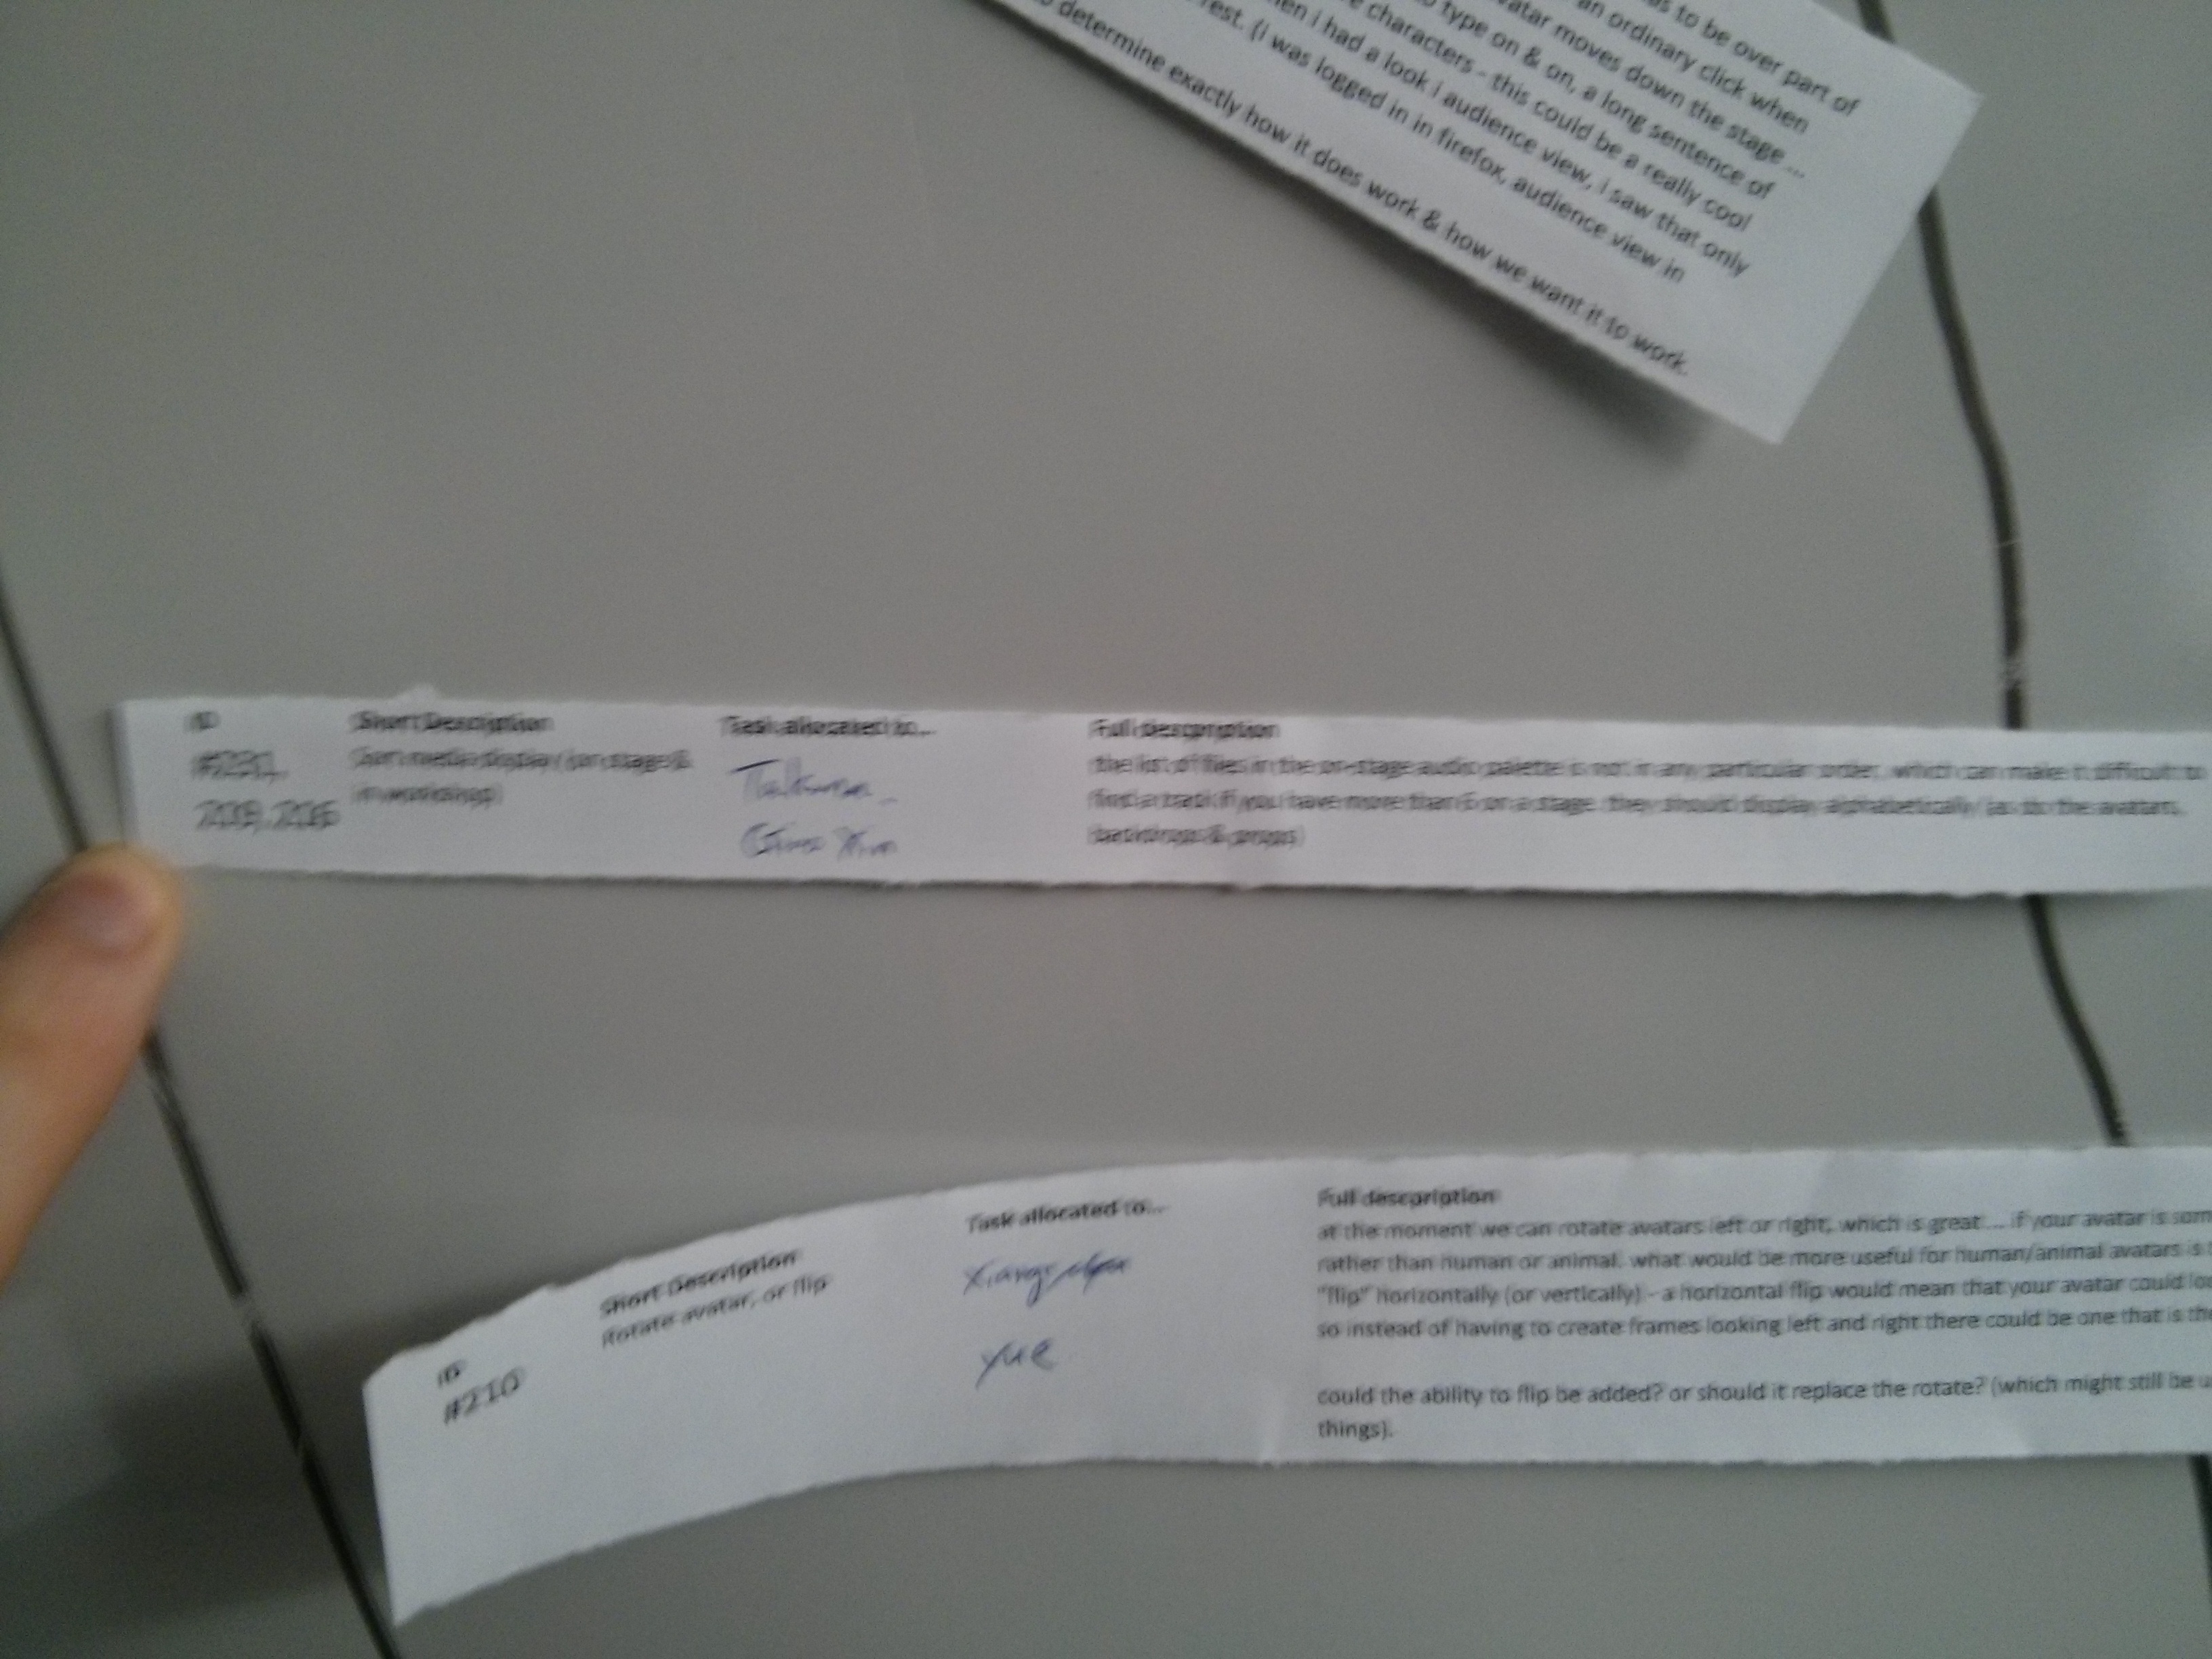 as to be over part of
an ordinary click when
avatar moves down the stage ...
type on & on, a long sentence of
characters - this could be a really cool
en i had a look i audience view, i saw that only
rest. (i was logged in in firefox, audience view in
determine exactly how it does work & how we want it to work.
ID
Short Description
Task allocated to...
Full description
#231,
Sort media display (on stage &
in workshop)
the list of files in the on-stage audio palette is not in any particular order, which can make it difficult to
find a track if you have more than 5 on a stage. they should display alphabetically (as do the avatars,
backdrops & props)
ID
#210
Short Description
Rotate avatar, or flip
Task allocated to...
yue
Full description
at the moment we can rotate avatars left or right, which is great ... if your avatar is som
rather than human or animal. what would be more useful for human/animal avatars is
"flip" horizontally (or vertically) - a horizontal flip would mean that your avatar could lo
so instead of having to create frames looking left and right there could be one that is the
could the ability to flip be added? or should it replace the rotate? (which might still be u
things).